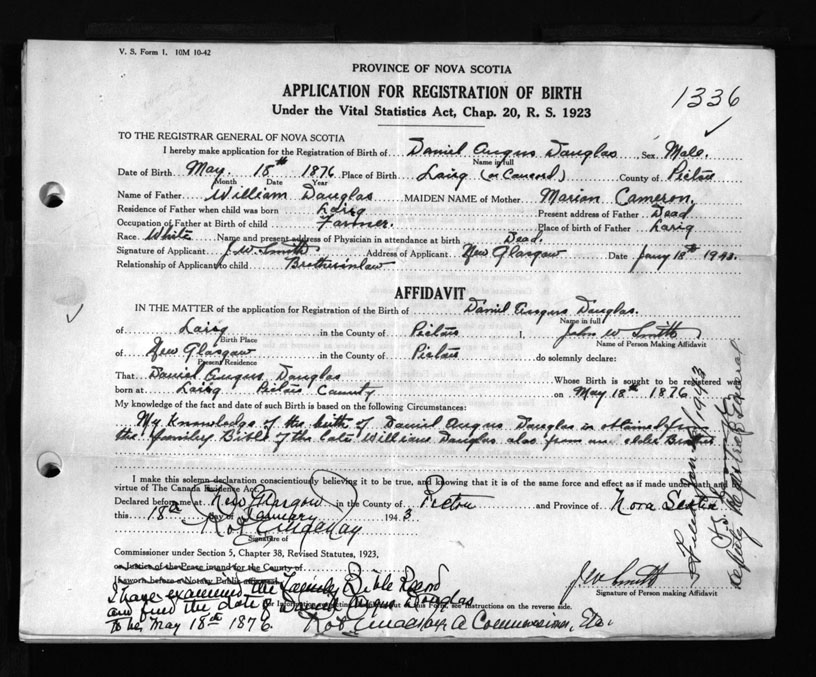 V. S. Form 1. 10M 10-42
PROVINCE OF NOVA SCOTIA
APPLICATION FOR REGISTRATION OF BIRTH
Under the Vital Statistics Act, Chap. 20, R. S. 1923
1336
TO THE REGISTRAR GENERAL OF NOVA SCOTIA
I hereby make application for the Registration of Birth of Daniel Angus Douglas Sex Male.
Name in full
Date of Birth May 18th 1876 Place of Birth Lairg (or Concord) County of Pictou
Month Date Year
Name of Father William Douglas MAIDEN NAME of Mother Marion Cameron.
Residence of Father when child was born Lairg Present address of Father Dead
Occupation of Father at Birth of child Farmer. Place of birth of Father Larig
Race White Name and present address of Physician in attendance at birth Dead.
Signature of Applicant J. W. Smith Address of Applicant New Glasgow Date Jany 18th 1943.
Relationship of Applicant to child Brotherinlaw
AFFIDAVIT
IN THE MATTER of the application for Registration of the Birth of Daniel Angus Douglas.
Name in full
of Lairg in the County of Pictou I, John W Smith
Birth Place Name of Person Making Affidavit
of New Glasgow in the County of Pictou do solemnly declare:
Present Residence
That Daniel Angus Douglas Whose Birth is sought to be registered was
born at Lairg Pictou County on May 18th 1876
My knowledge of the fact and date of such Birth is based on the following Circumstances:
My Knowledge of the birth of Daniel Angus Douglas is obtained from
the family Bible of the late William Douglas also from an elder Brother
I make this solemn declaration conscientiously believing it to be true, and knowing that it is of the same force and effect as if made under oath and
virtue of The Canada Evidence Act.
Declared before me at New Glasgow in the County of Pictou and Province of Nova Scotia
this 18th day of January 1943.
Signature of
Commissioner under Section 5, Chapter 38, Revised Statutes, 1923,
or Justice of the Peace in and for the County of
J. W. Smith
Signature of Person making Affidavit
I have examined the Family Bible Record
For Information respecting use of this Form, see Instructions on the reverse side.
and find the date of Daniel Angus Douglas
to be May 18th 1876. A Commissioner, Etc.
1943
Deputy Registrar General